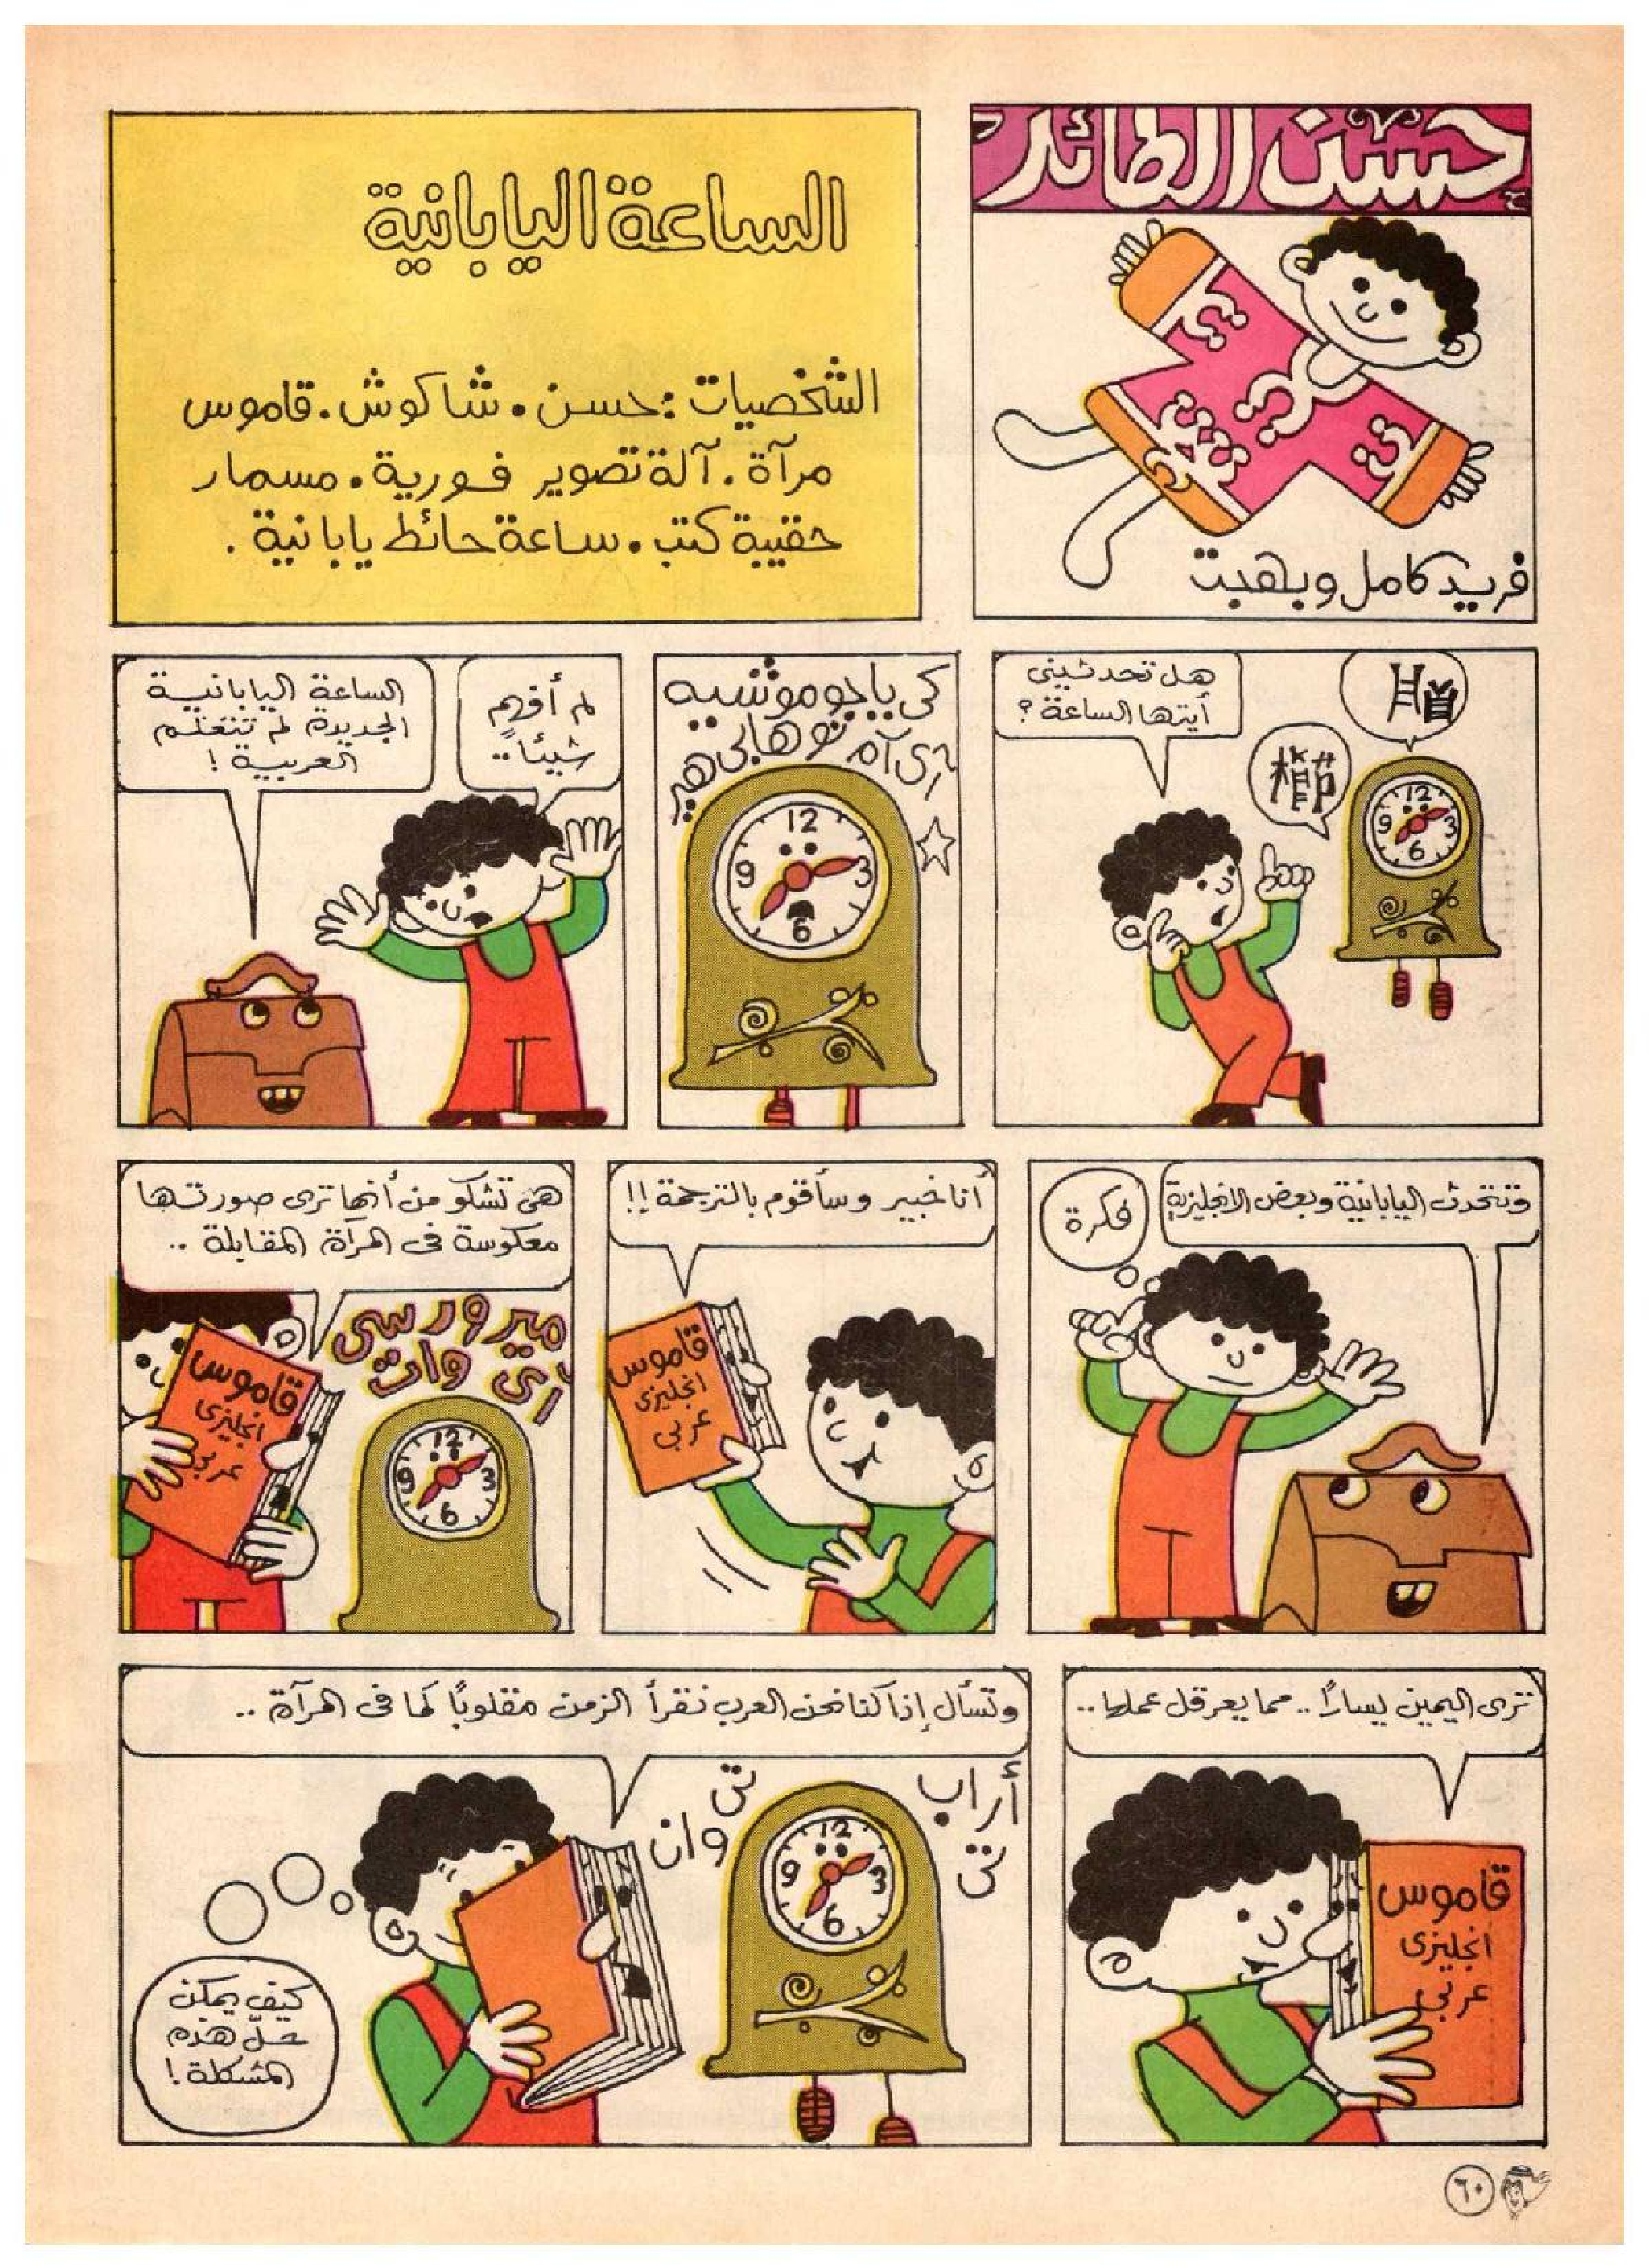 حسن الطائر
فريد كامل وبهجت
الساعة اليابانية
الشخصيات: حسن. شاكوش. قاموس
مرآة. آلة تصوير فورية. مسمار
حقيبة كتب. ساعة حائط يابانية.
هل تحدثيني
أيتها الساعة؟
12
3
6
9
كي يا جو موتشيه
آي آه تو هابي هير
12
3
6
9
لم أفهم
شيئاً..
الساعة اليابانية
الجديدة لم تتعلم
العربية!
وتتحدث اليابانية وبعض الانجليزية
فكرة
أنا خبير وسأقوم بالترجمة!!
قاموس
انجليزى
عربي
هى تشكو من أنها ترى صورتها
معكوسة فى المرآة المقابلة ..
ميرور سي
آي وات
قاموس
انجليزى
عربي
12
3
6
9
ترى اليمين يساراً.. مما يعرقل عملها..
قاموس
انجليزى
عربي
وتسأل إذا كنا نحن العرب نقرأ الزمن مقلوباً كما فى المرآة ..
أراب
تى
تى
وان
12
3
6
9
كيف يمكن
حلّ هذه
المشكلة!
٦٠